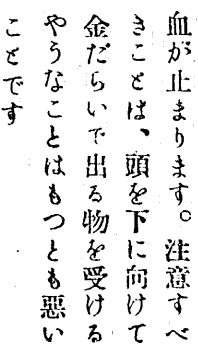 血が止まります。注意すべ
きことは、頭を下に向けて
金だらいで出る物を受ける
やうなことはもつとも悪い
ことです